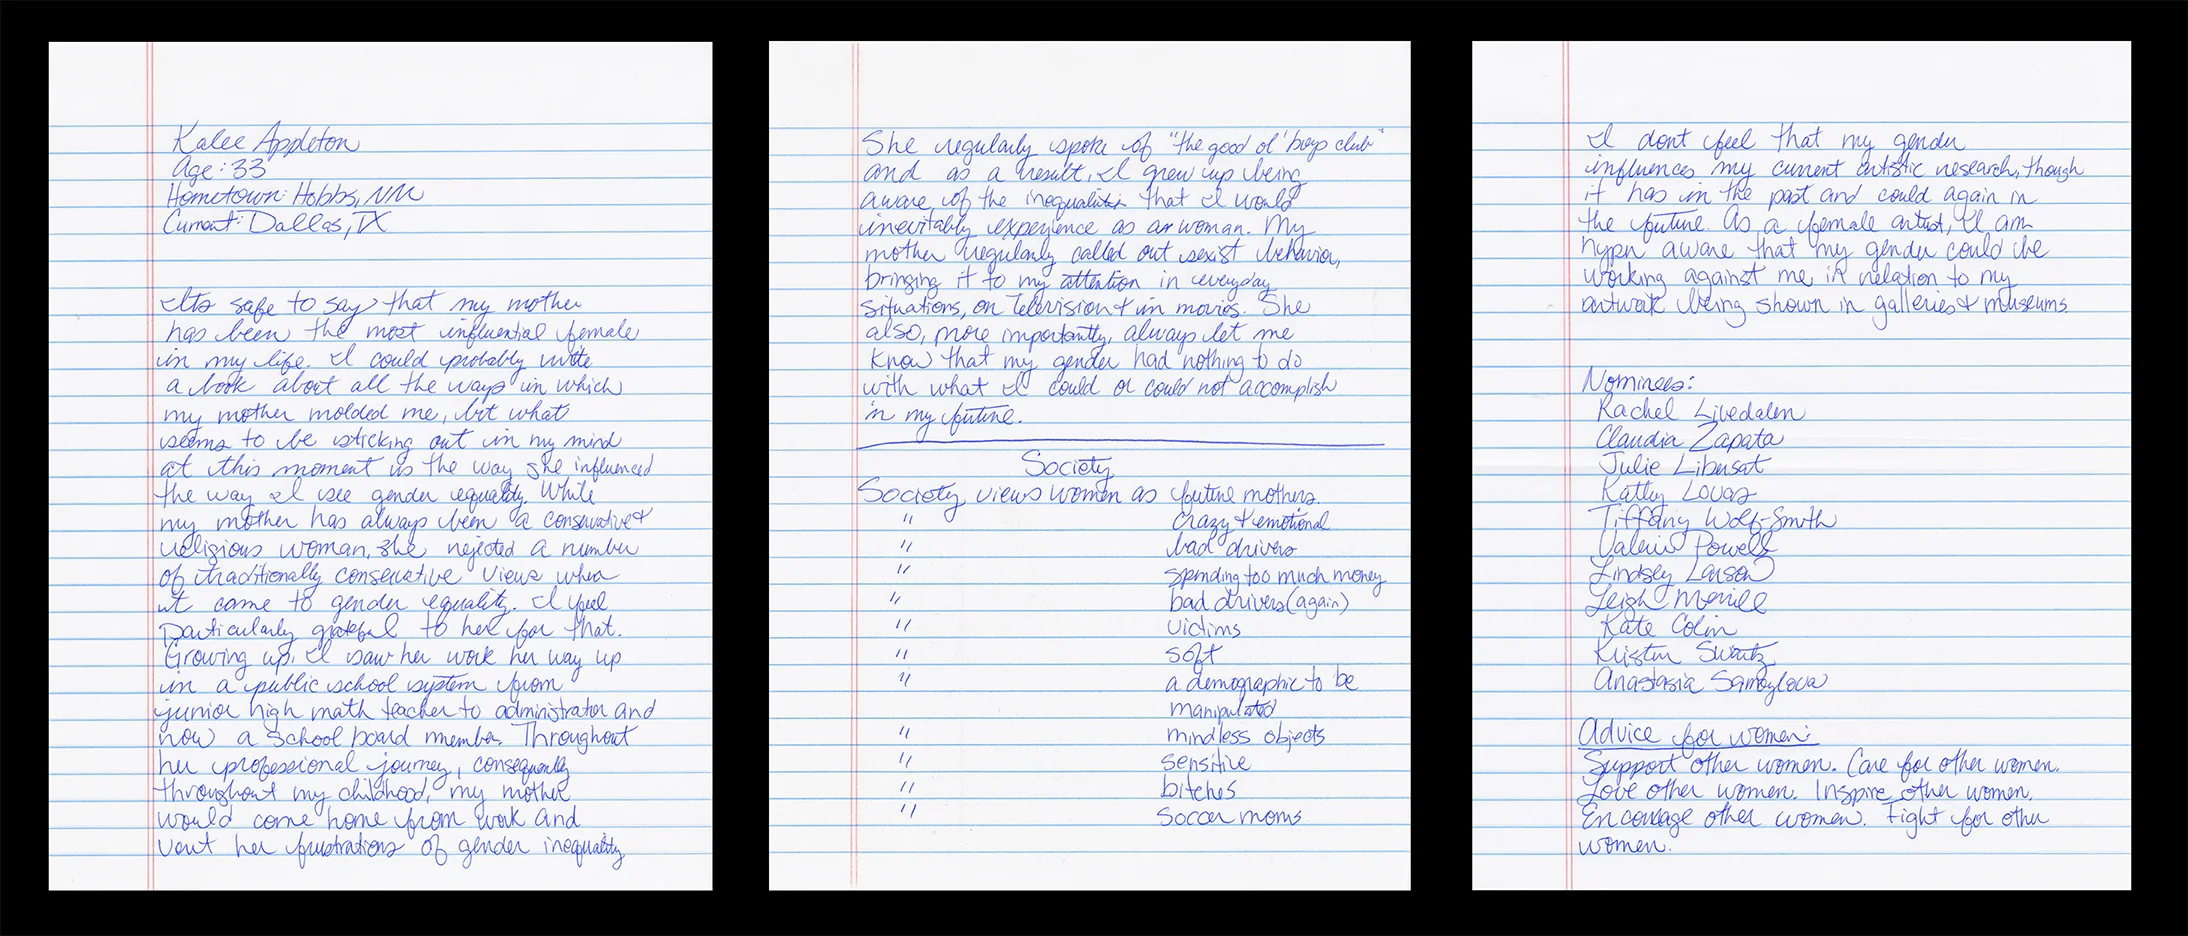 Kalee Appleton
Age: 33
Hometown: Hobbs, NM
Current: Dallas, TX
Its safe to say that my mother
has been the most influential female
in my life. I could probably write
a book about all the ways in which
my mother molded me, but what
seems to be sticking out in my mind
at this moment is the way she influenced
the way I see gender equality. While
my mother has always been a conservative &
religious woman, she rejected a number
of traditionally conservative views when
it came to gender equality. I feel
particularly grateful to her for that.
Growing up, I saw her work her way up
in a public school system from
junior high math teacher to administrator and
now a school board member. Throughout
her professional journey, consequently
throughout my childhood, my mother
would come home from work and
vent her frustrations of gender inequality.
She regularly spoke of "the good ol' boys club"
and as a result, I grew up being
aware of the inequalities that I would
inevitably experience as a woman. My
mother regularly called out sexist behavior,
bringing it to my attention in everyday
situations, on television & in movies. She
also, more importantly, always let me
know that my gender had nothing to do
with what I could or could not accomplish
in my future.
Society
Society views women as future mothers.
" crazy & emotional
" bad drivers
" spending too much money
" bad drivers (again)
" victims
" soft
" a demographic to be
manipulated
" mindless objects
" sensitive
" bitches
" soccer moms
I dont feel that my gender
influences my current artistic research, though
it has in the past and could again in
the future. As a female artist, I am
hyper aware that my gender could be
working against me in relation to my
artwork being shown in galleries & museums.
Nominees:
Rachel Livedalen
Claudia Zapata
Julie Libersat
Kathy Lovas
Tiffany Wolf-Smith
Valerie Powells
Lindsey Larson
Leigh Merrill
Kate Colin
Kristen Swartz
Anastasia Samoylova
Advice for women:
Support other women. Care for other women.
Love other women. Inspire other women.
Encourage other women. Fight for other
women.